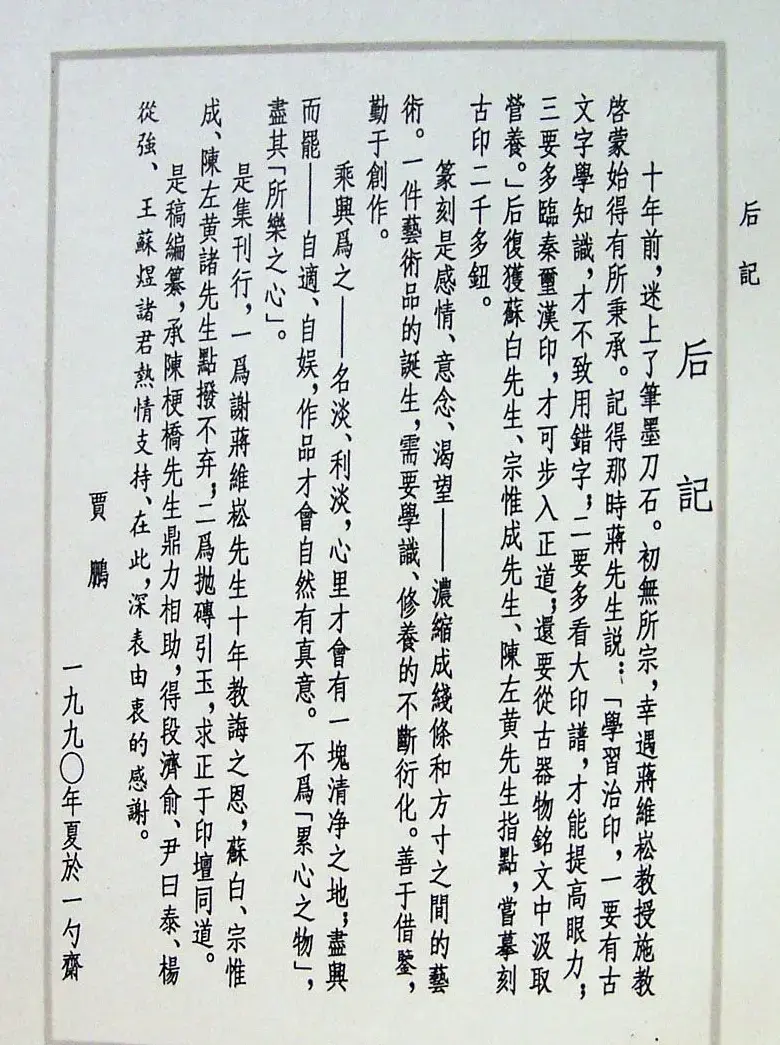 后記
后記
十年前，迷上了筆墨刀石。初無所宗，幸遇蔣維崧教授施教
啓蒙始得有所秉承。記得那時蔣先生説：「學習治印，一要有古
文字學知識，才不致用錯字；二要多看大印譜，才能提高眼力；
三要多臨秦璽漢印，才可步入正道；還要從古器物銘文中汲取
營養。」后復獲蘇白先生、宗惟成先生、陳左黄先生指點，嘗摹刻
古印二千多鈕。
篆刻是感情、意念、渴望——濃縮成綫條和方寸之間的藝
術。一件藝術品的誕生，需要學識、修養的不斷衍化。善于借鑒，
勤于創作。
乘興爲之——名淡、利淡，心里才會有一塊清净之地；盡興
而罷——自適、自娱，作品才會自然有真意。不爲「累心之物」，
盡其「所樂之心」。
是集刊行，一爲謝蔣維崧先生十年教誨之恩，蘇白、宗惟
成、陳左黄諸先生點撥不弃；二爲抛磚引玉，求正于印壇同道。
是稿編纂，承陳梗橋先生鼎力相助，得段濟俞、尹曰泰、楊
從強、王蘇煜諸君熱情支持、在此，深表由衷的感謝。
賈鵬
一九九〇年夏於一勺齋